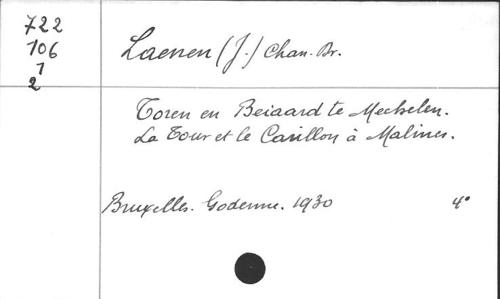 722
106
1
2
Laenen (J.) Chan. Dr.
Toren en Beiaard te Mechelen.
La Tour et le Carillon à Malines.
Bruxelles. Godenne. 1930 4°